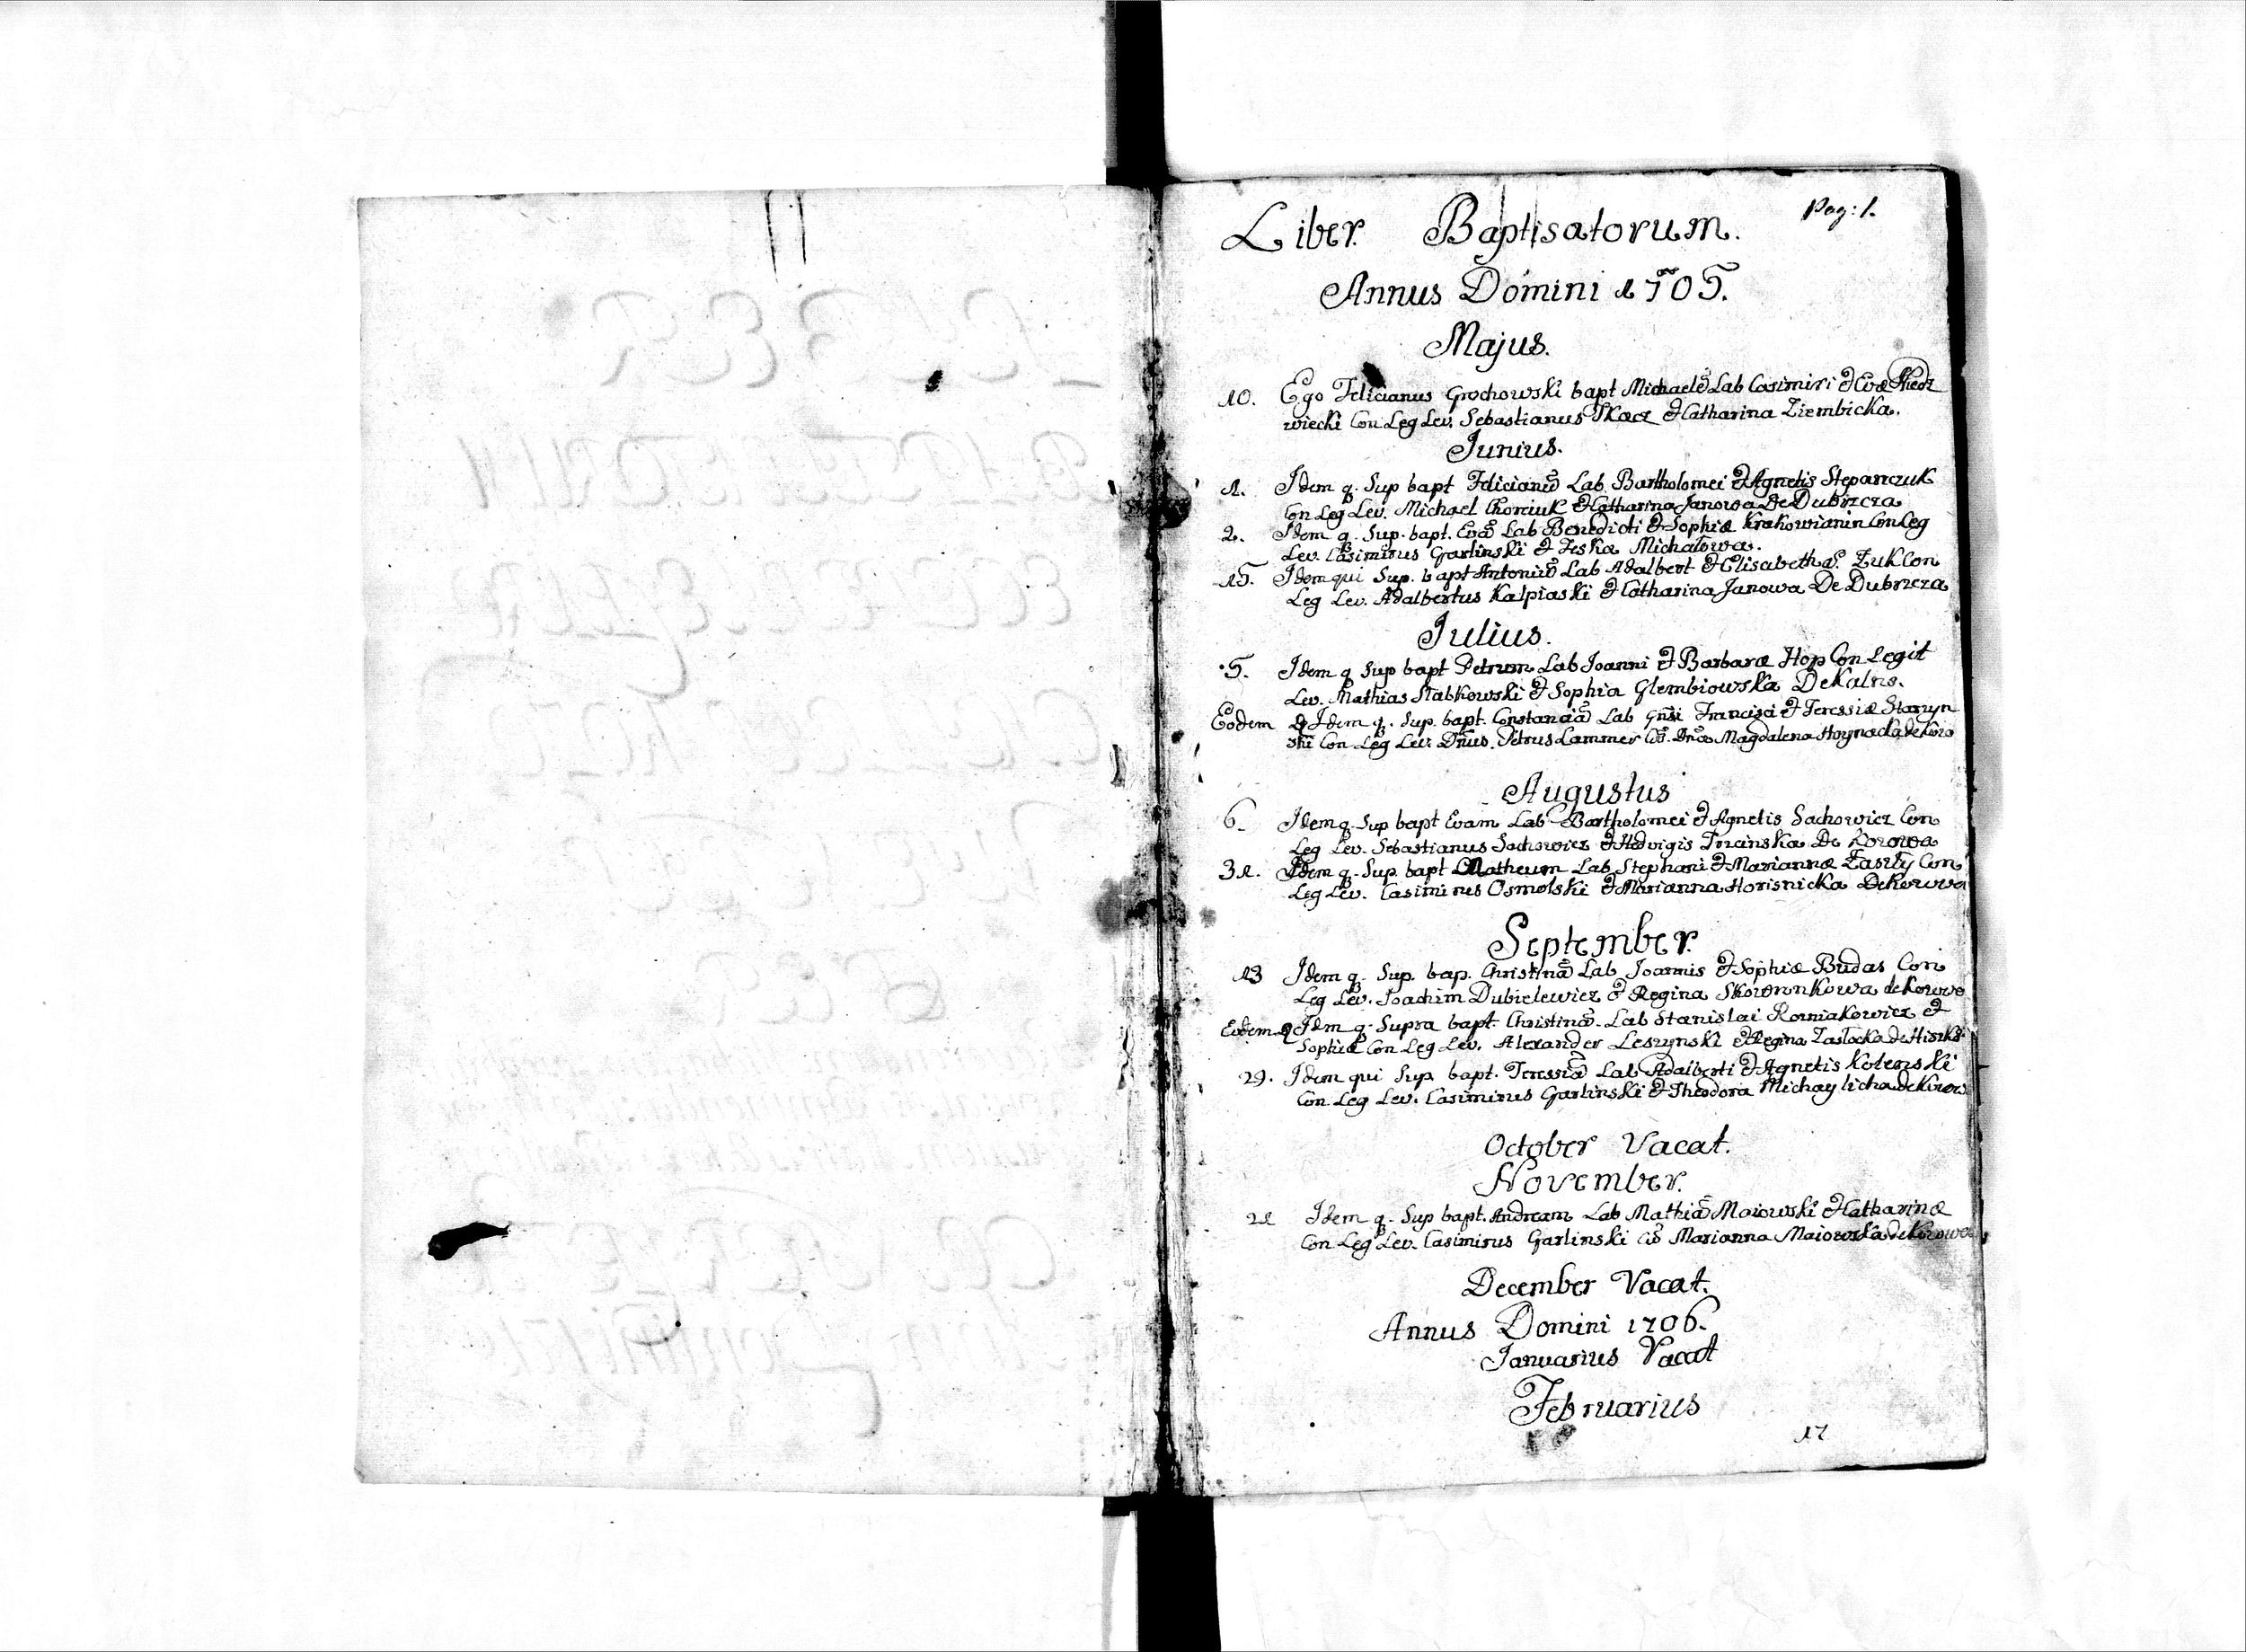 Pag: 1.
Liber Baptisatorum.
Annus Domini 1705.
Majus.
10. Ego Felicianus Grochowski bapt Michaelē Lab Casimiri & Evæ Niedz
wiecki Con Leg Lev. Sebastianus Tkacz & Catharina Ziembicka.
Junius.
1. Idem q. Sup bapt Felicianū Lab Bartholomei & Agnetis Stepanczuk
Con Leg Lev. Michael Chorciuk & Catharina Janowa De Dubrzcza
2. Idem q. Sup. bapt. Evā Lab Benedicti & Sophiæ Krakowianin Con Leg
Lev. Casimirus Garlinski & Michałowa.
15. Idem qui Sup. bapt Antoniū Lab Adalbert & Elisabetha Zuk Con
Leg Lev. Adalbertus Kalpiaski & Catharina Janowa De Dubrzcza
Julius.
5. Idem q Sup bapt Petrum Lab Joanni & Barbaræ Hop Con Legit
Lev. Mathias Stabkowski & Sophia Glembiowska De Kalno.
Eodem Idem q. Sup. bapt. Constanciā Lab Gnsi Francisci & Teressiæ Staryn
ski Con Leg Lev. Dnus. Petrus Lammer Magdalena Hoynacka de Koro
Augustus
6. Idem q. Sup bapt Evam Lab Bartholomei & Agnetis Sachowicz Con
Leg Lev. Sebastianus Sachowicz & Hedvigis Trzcinska De Korowa
31. Idem q. Sup. bapt Matheum Lab Stephani & Mariannæ Zasuły Con
Leg Lev. Casimirus Osmolski & Marianna Horisnicka De Korowa
September.
13 Idem q. Sup. bap. Christinā Lab Joannis & Sophiæ Budas Con
Leg Lev. Joachim Dubielewicz & Regina Skowronkowa de Korowo
Eodem Idem q. Supra bapt. Christinā. Lab Stanislai Rozniakowicz &
Sophiæ Con Leg Lev. Alexander Leszynski & Regina Zasłocka de
29. Idem qui Sup. bapt. Teressiā Lab Adalberti & Agnetis Kolenski
Con Leg Lev. Casimirus Garlinski & Theodora Michaylicha de Korow
October Vacat.
November.
21 Idem q. Sup bapt. Andream Lab Mathiā Maiowski & Catharinæ
Con Leg Lev. Casimirus Garlinski Marianna Maiowska de Korowa
December Vacat.
Annus Domini 1706.
Januarius Vacat
Februarius
17